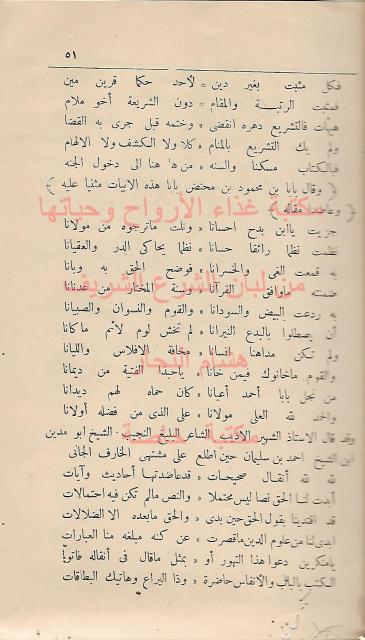 ٥١
فكل مثبت بغير دين = لأحد حكما قرين مين
فمثبت الرتبة والمقام = دون الشريعة أخو ملام
هيهات فالتشريع دهره انقضى * وختمه قبل جرى به القضا
ولم يك التشريع بالمنام * كلا ولا الكشف ولا الالهام
فبالكتاب مسكنا والسنه * من ها هنا الى دخول الجنه
﴿ وقال بابا بن محمود بن محنض بابا هذه الابيات مثنيا عليه ﴾
﴿ وعاضدا مقاله ﴾
مكتبة غذاء الأرواح وحياتها
جزيت ياابن بدح احسانا * ونلت ماترجوه من مولانا
نظمت نظما رائقا حسانا * نظما يحاكى الدر والعقيانا
به قمعت الغى والخسرانا * فوضح الحق به وبانا
ضمنته ماوافق القرآنا * وسنة المختار من عدنانا
من لبان الشرع الشريف
به ردعت البيض والسودانا * والقوم والنسوان والصبيانا
أن يصطلوا بالبدع النيرانا * لم تخش لوم لائم ماكانا
ولم تكن مداهنا انسانا * مخافة الافلاس والليانا
هشام النجار
والقوم ماخانوك فيمن خانا * ياحبذا الفتية من ديمانا
من نجل بابا أحمد أعيانا * كان حماه لهم ديدانا
واحمد لله العلى مولانا * على الذى من فضله أولانا
مكتبة خاصة
وقد قال الاستاذ الشهير الاديب الشاعر البليغ النجيب الشيخ ابو مدين
ابن الشيخ احمد بن سليمان حين اطلع على مشتهى الخارف الجانى
لله لله أنقال صحيحات * قدعاضدتها أحاديث وآيات
أبدت لنا الحق نصا ليس محتملا * والنص مالم تكن فيه احتمالات
قد اقتدينا بقول الحق حين بدى * والحق مابعده الا الضلالات
ابدى لنا من علوم الدين ماقصرت * عن كنه مبلغه منا العبارات
يامنكرين دعوا هذا التهور أو * بمثل ماقال فى أنقاله فاتوا
الكتب بالباب والانفاس حاضرة * وذا اليراع وهاتيك البطاقات